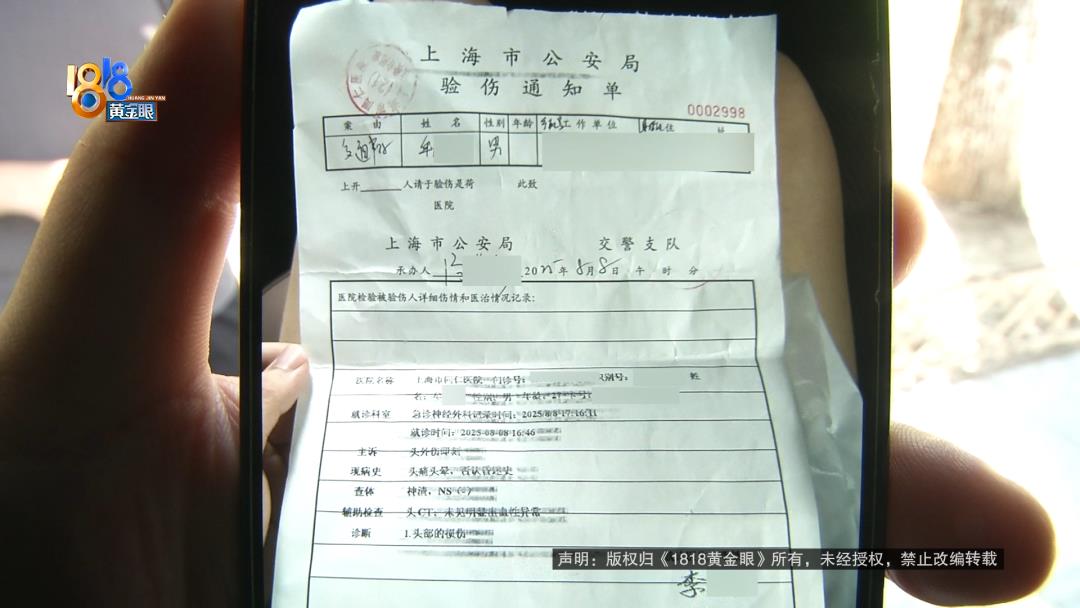 1818
HUANG JIN YAN
黄金眼
上海市公安局
验伤通知单
0002998
案由 姓名 性别 年龄 工作单位 住址
交通事故 年 男
上开 人请于验伤是荷 此致
医院
上海市公安局 交警支队
承办人 2025年8月8日 午 时 分
医院检验被验伤人详细伤情和医治情况记录:
医院名称 上海市同仁医院 门诊号: 识别号: 姓
名: 年 性别: 男 年龄: 27 卡号:
就诊科室 急诊神经外科记录时间: 2025/8/8 17:16:11
就诊时间: 2025-08-08 16:46
主诉 头外伤即刻
现病史 头痛头晕, 否认昏迷史
查体 神清, NS (-)
辅助检查 头CT, 未见明显出血性异常
诊断 1.头部的损伤
声明：版权归《1818黄金眼》所有，未经授权，禁止改编转载
李